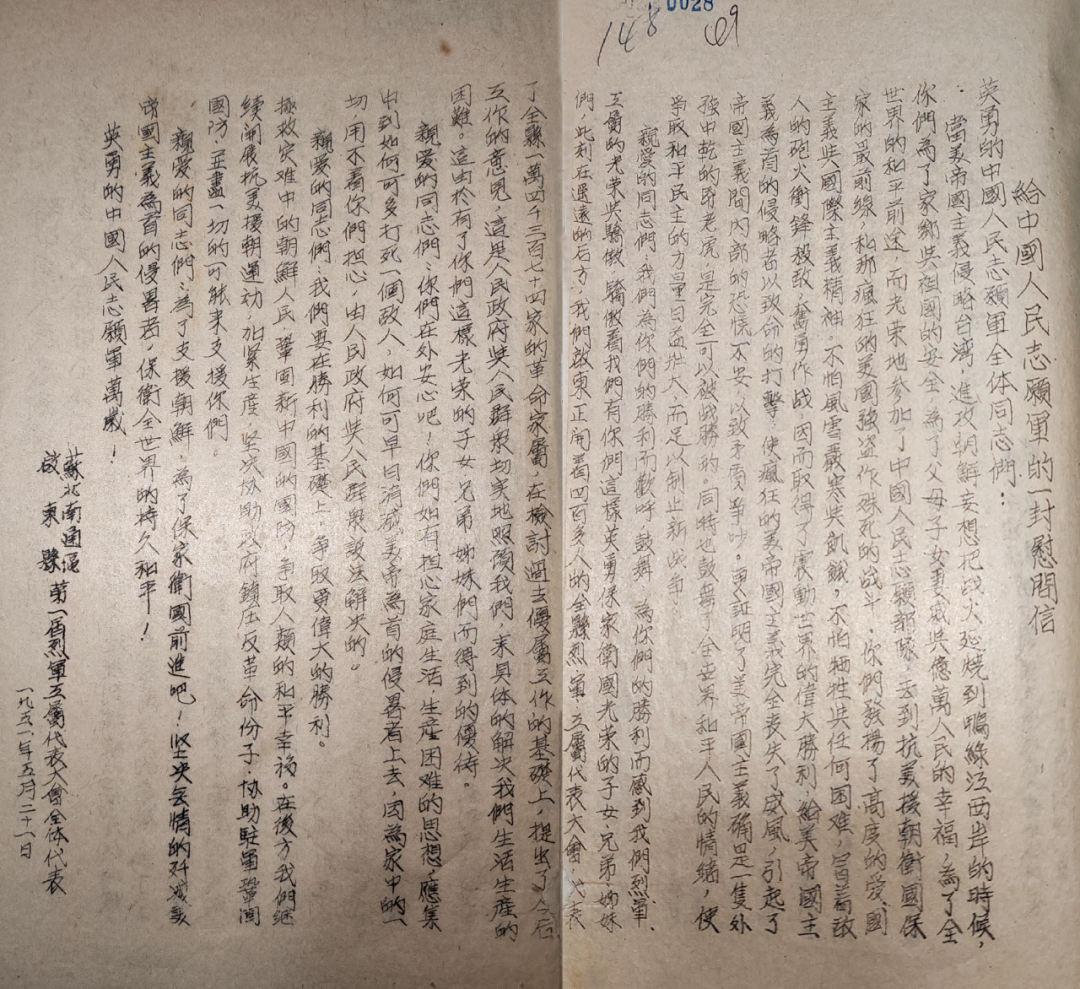 0028
148
49
給中國人民志願軍的一封慰問信
英勇的中國人民志願軍全体同志們：
當美帝國主義侵略台湾，進攻朝鮮妄想把战火延燒到鴨綠江西岸的時候，
你們為了家鄉與祖國的安全，為了父母子女妻戚與億萬人民的幸福，為了全
世界的和平前途，而光荣地参加了中國人民志願部隊，去到抗美援朝衛國保
家的最前線，和那瘋狂的美國強盗作殊死的战斗，你們發揚了高度的爱國
主義與國際主義精神，不怕風雪嚴寒與飢餓，不怕牺牲與任何困难，冒着敌
人的砲火衝鋒殺敌，奮勇作战，因而取得了震動世界的偉大勝利，給美帝國主
義為首的侵略者以致命的打擊，使瘋狂的美帝國主義完全丧失了威風，引起了
帝國主義間內部的恐慌不安，以致矛盾爭吵。更証明了美帝國主義确是一隻外
強中乾的紙老虎，是完全可以被战勝的。同時也鼓舞了全世界和平人民的情緒，使
爭取和平民主的力量日益壯大，而足以制止新战争。
親爱的同志們：我們為你們的勝利而歡呼，鼓舞，為你們的勝利而感到我們烈軍、
工屬的光荣與驕傲，驕傲着我們有你們這樣英勇保家衛國光荣的子女、兄弟、姊妹
們，此刻在遥遠的后方，我們啟東正開着四百多人的全縣烈軍、工屬代表大會，代表
了全縣一萬四千三百七十四家的革命家屬，在檢討過去優屬工作的基礎上，提出了今后
工作的意見，這是人民政府與人民群眾切实地照顧我們，来具体的解决我們生活生產的
困难。這由於有了你們這樣光荣的子女、兄弟、姊妹們而得到的優待。
親爱的同志們：你們在外安心吧！你們如有担心家庭生活，生産困难的思想，應集
中到如何可多打死一個敌人，如何可早日消滅美帝為首的侵畧者上去，因為家中的一
切用不着你們担心，由人民政府與人民群眾設法解决的。
親爱的同志們：我們要在勝利的基礎上，争取更偉大的勝利。
拯救灾难中的朝鮮人民，鞏固新中國的國防，争取人類的和平幸福。在後方我們繼
續開展抗美援朝運动，加紧生産，坚决协助政府鎮压反革命份子，协助駐軍鞏固
國防，並盡一切的可能来支援你們。
親爱的同志們：為了支援朝鮮，為了保家衛國前進吧！坚决無情的歼滅美
帝國主義為首的侵畧者，保衛全世界的持久和平！
英勇的中國人民志願軍萬歲！
蘇北南通區
啟東縣
第一届烈軍工屬代表大會全体代表
一九五一年五月二十一日